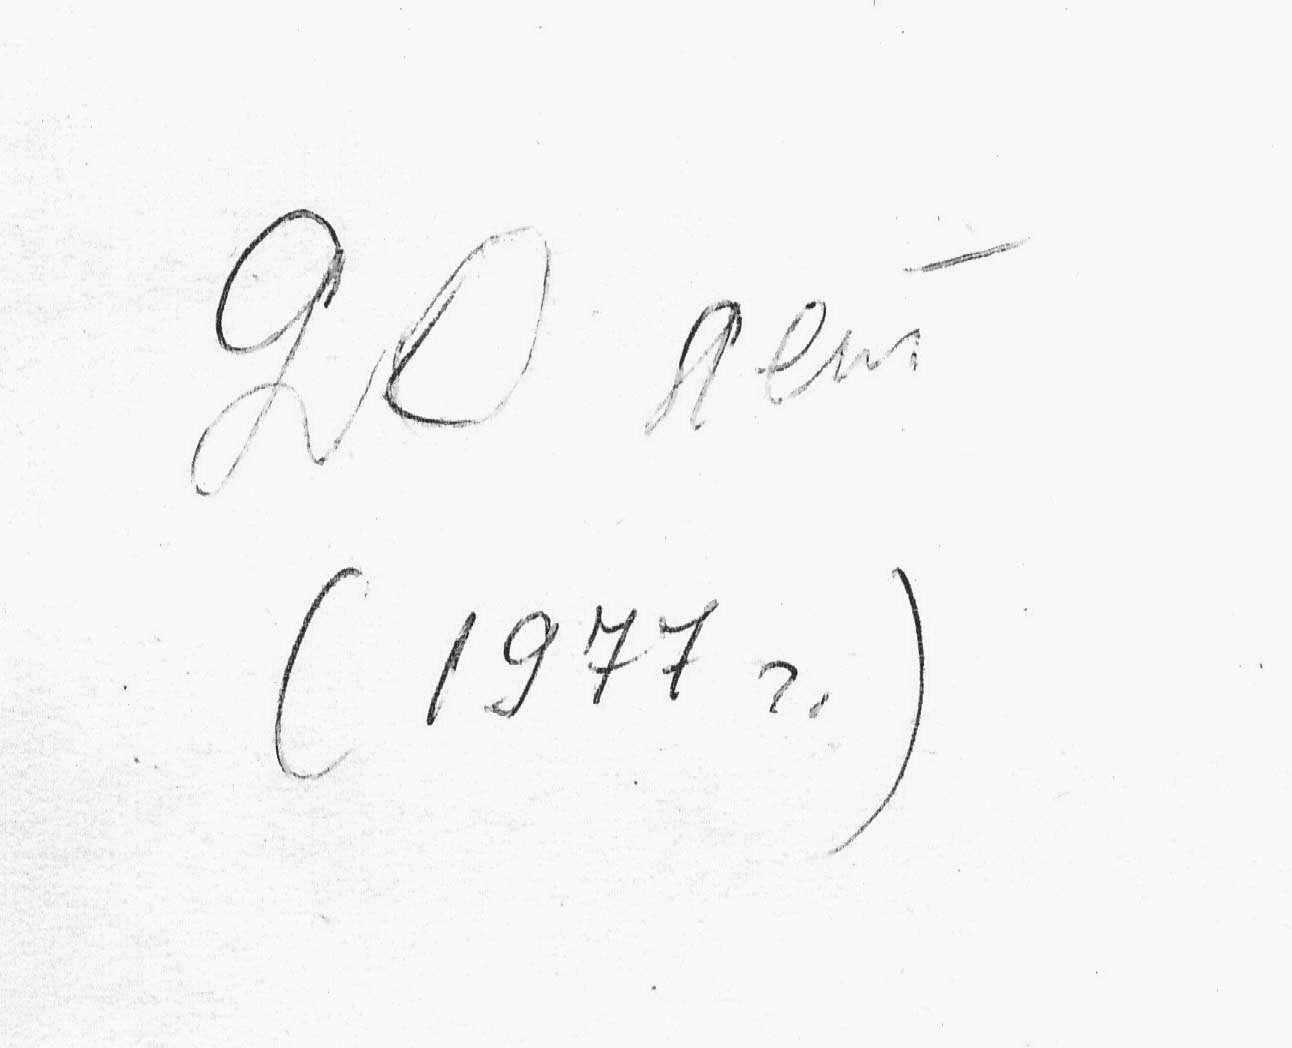 20 лет
(1977 г.)